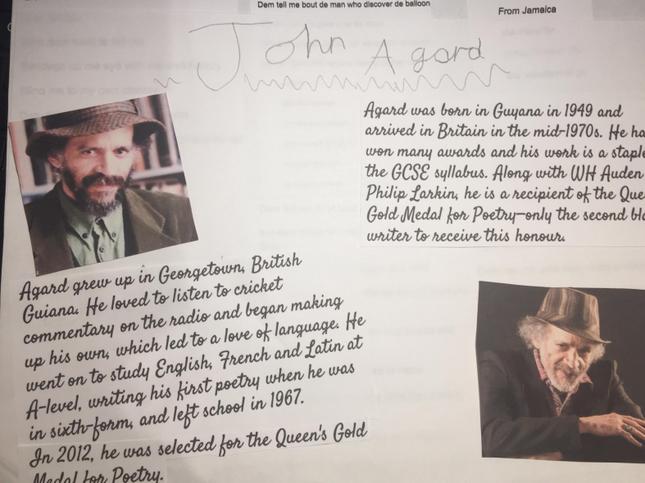 Dem tell me bout de man who discover de balloon
From Jamaica
John Agard
Agard was born in Guyana in 1949 and
arrived in Britain in the mid-1970s. He ha
won many awards and his work is a staple
the GCSE syllabus. Along with WH Auden
Philip Larkin, he is a recipient of the Quee
Gold Medal for Poetry—only the second bla
writer to receive this honour.
Agard grew up in Georgetown, British
Guiana. He loved to listen to cricket
commentary on the radio and began making
up his own, which led to a love of language. He
went on to study English, French and Latin at
A-level, writing his first poetry when he was
in sixth-form, and left school in 1967.
In 2012, he was selected for the Queen's Gold
Medal for Poetry.